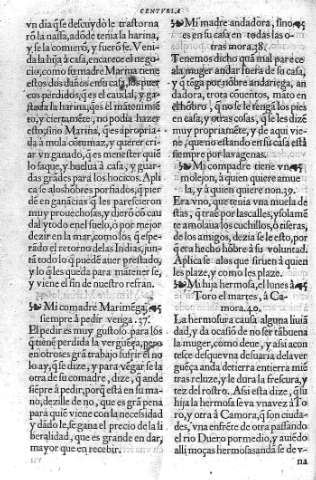 CENTVRIA
vn dia q̃ se descuydò le trastorna
rõ la nassa, adõde tenia la harina,
y se la comierõ, y fuerõ se. Veni-
da la hija à casa, encarece el nego-
cio, como su madre Marina tiene
estos dissantes en su casa, los puer
cos perdidos, q̃ es el caudal, y ga-
stada la harina, q̃ es el mãtenimiẽ
to, y ciertamẽte, no podia hazer
esto, sino Marina, q̃ es apropria-
da à mala
ar vn ganado, q̃ es menester quiẽ
lo saque, y buelua à casa, y guar-
das grãdes para los hocicos. Apli
ca se alos hõbres porfiados, q̃ pier
dẽ en ganãcias q̃ les parescieron
muy prouechosas, y dierõ cõ cau
dal y todo en el suelo, ò por mejor
dezir en la mar, como los q̃ espe-
rãdo el retorno de las Indias, jun-
tã todo lo q̃ puedẽ auer prestado,
y lo q̃ les queda para mãtener se,
y viene el fin de nuestro refran.
Mi comadre Marimẽga,
siempre à pedir venga. 37.
El pedir es muy gustoso para los
q̃ tienẽ perdida la verguẽça, pero
en otros es grã trabajo sufrir el no
lo ay, q̃ se dize, y para vẽgar se la
otra de su comadre, dize, q̃ ande
siẽpre à pedir, porq̃ està en su ma-
no, dezille de no, que es grã pena
para quiẽ viene con la necessidad
y dado le, se gana el precio de la li
beralidad, que es grande en dar,
mayor que en recebir.
Mi madre andadora, sino
es en su casa en todas las o-
tras mora. 38.
Tenemos dicho quã mal parece
ala muger andar fuera de su casa,
y q̃ tẽga por nõbre andariega, an
dadora, trota conuentos, mãto en
el hõbro, que no se le tẽga los pies
en casa, y otras cosas, q̃ se les dizẽ
muy propriamẽte, y de aqui vie-
ne, que no estando en su casa està
siempre por las agenas.
Mi compadre tiene vn
molejon, à quien quiere amue
la, y à quien quiere non. 39.
Era vno, que tenia vna muela de
estas, q̃ traẽ por las calles, y solamẽ
te amolaua los cuchillos, ò tiseras,
de los amigos, dezia se le esto, por
q̃ era hecho hõbre à su voluntad.
Aplica se alos que siruen à quien
les plaze, y como les plaze.
Mi hija hermosa, el lunes à
Toro el martes, à Ça-
mora. 40.
La hermosura causa alguna liuiã
dad, y da ocasiõ de no ser tã buena
la muger, como deue, y assi acon
tesce desque vna desuaria dela ver
guẽça anda detierra entierra miẽ
tras reluze, y le dura la frescura, y
tez del rostro. Assi esta dize, q̃ su
hija la hermosa se va vna vez à To
ro, y otra à Çamora, q̃ son ciuda-
des, vna enfrẽte de otra passando
el rio Duero por medio, y auiẽdo
alli moças hermosas andã se de v-
na